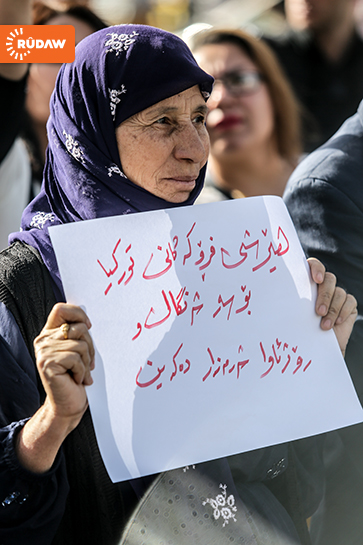 RÛDAW
هێرشی فڕۆکەکانی تورکیا
بۆ سەر شەنگال و
رۆژئاوا شەرمەزار دەکەین